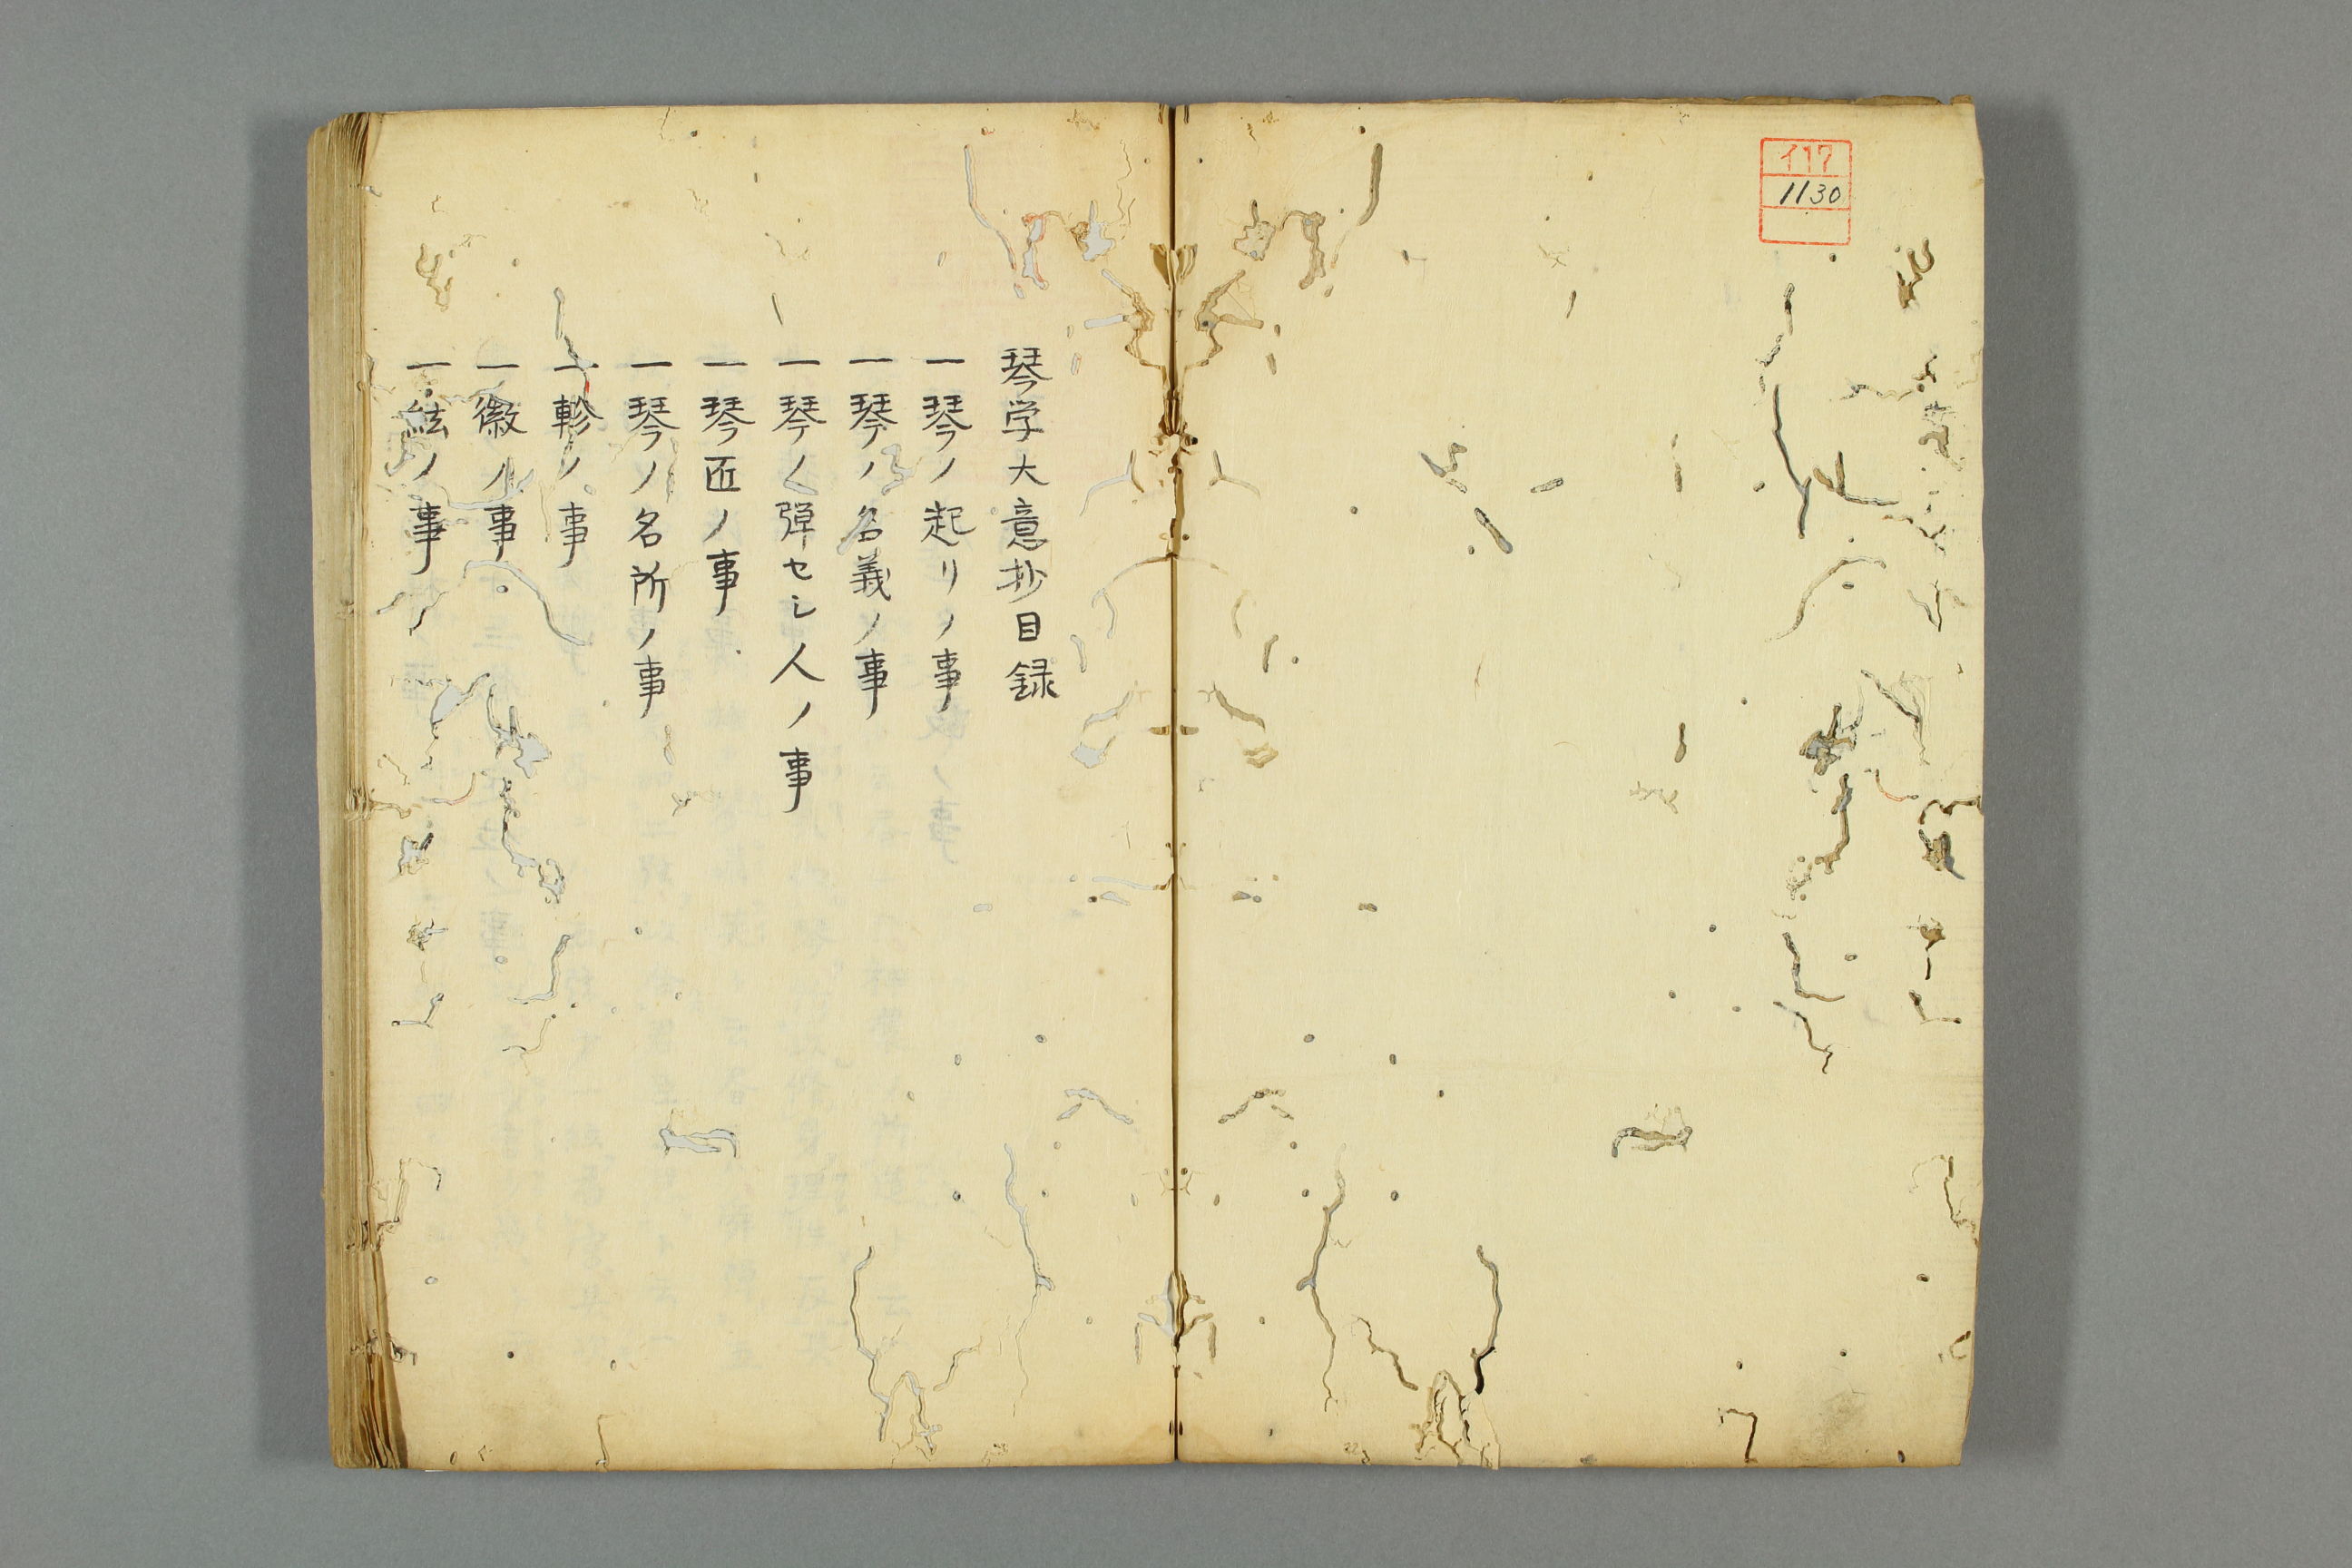 イ17
1130
琴学大意抄目録
一琴ノ起リノ事
一琴ノ名義ノ事
一琴ノ弾セシ人ノ事
一琴匠ノ事
一琴ノ名所ノ事
一軫ノ事
一徽ノ事
一絃ノ事